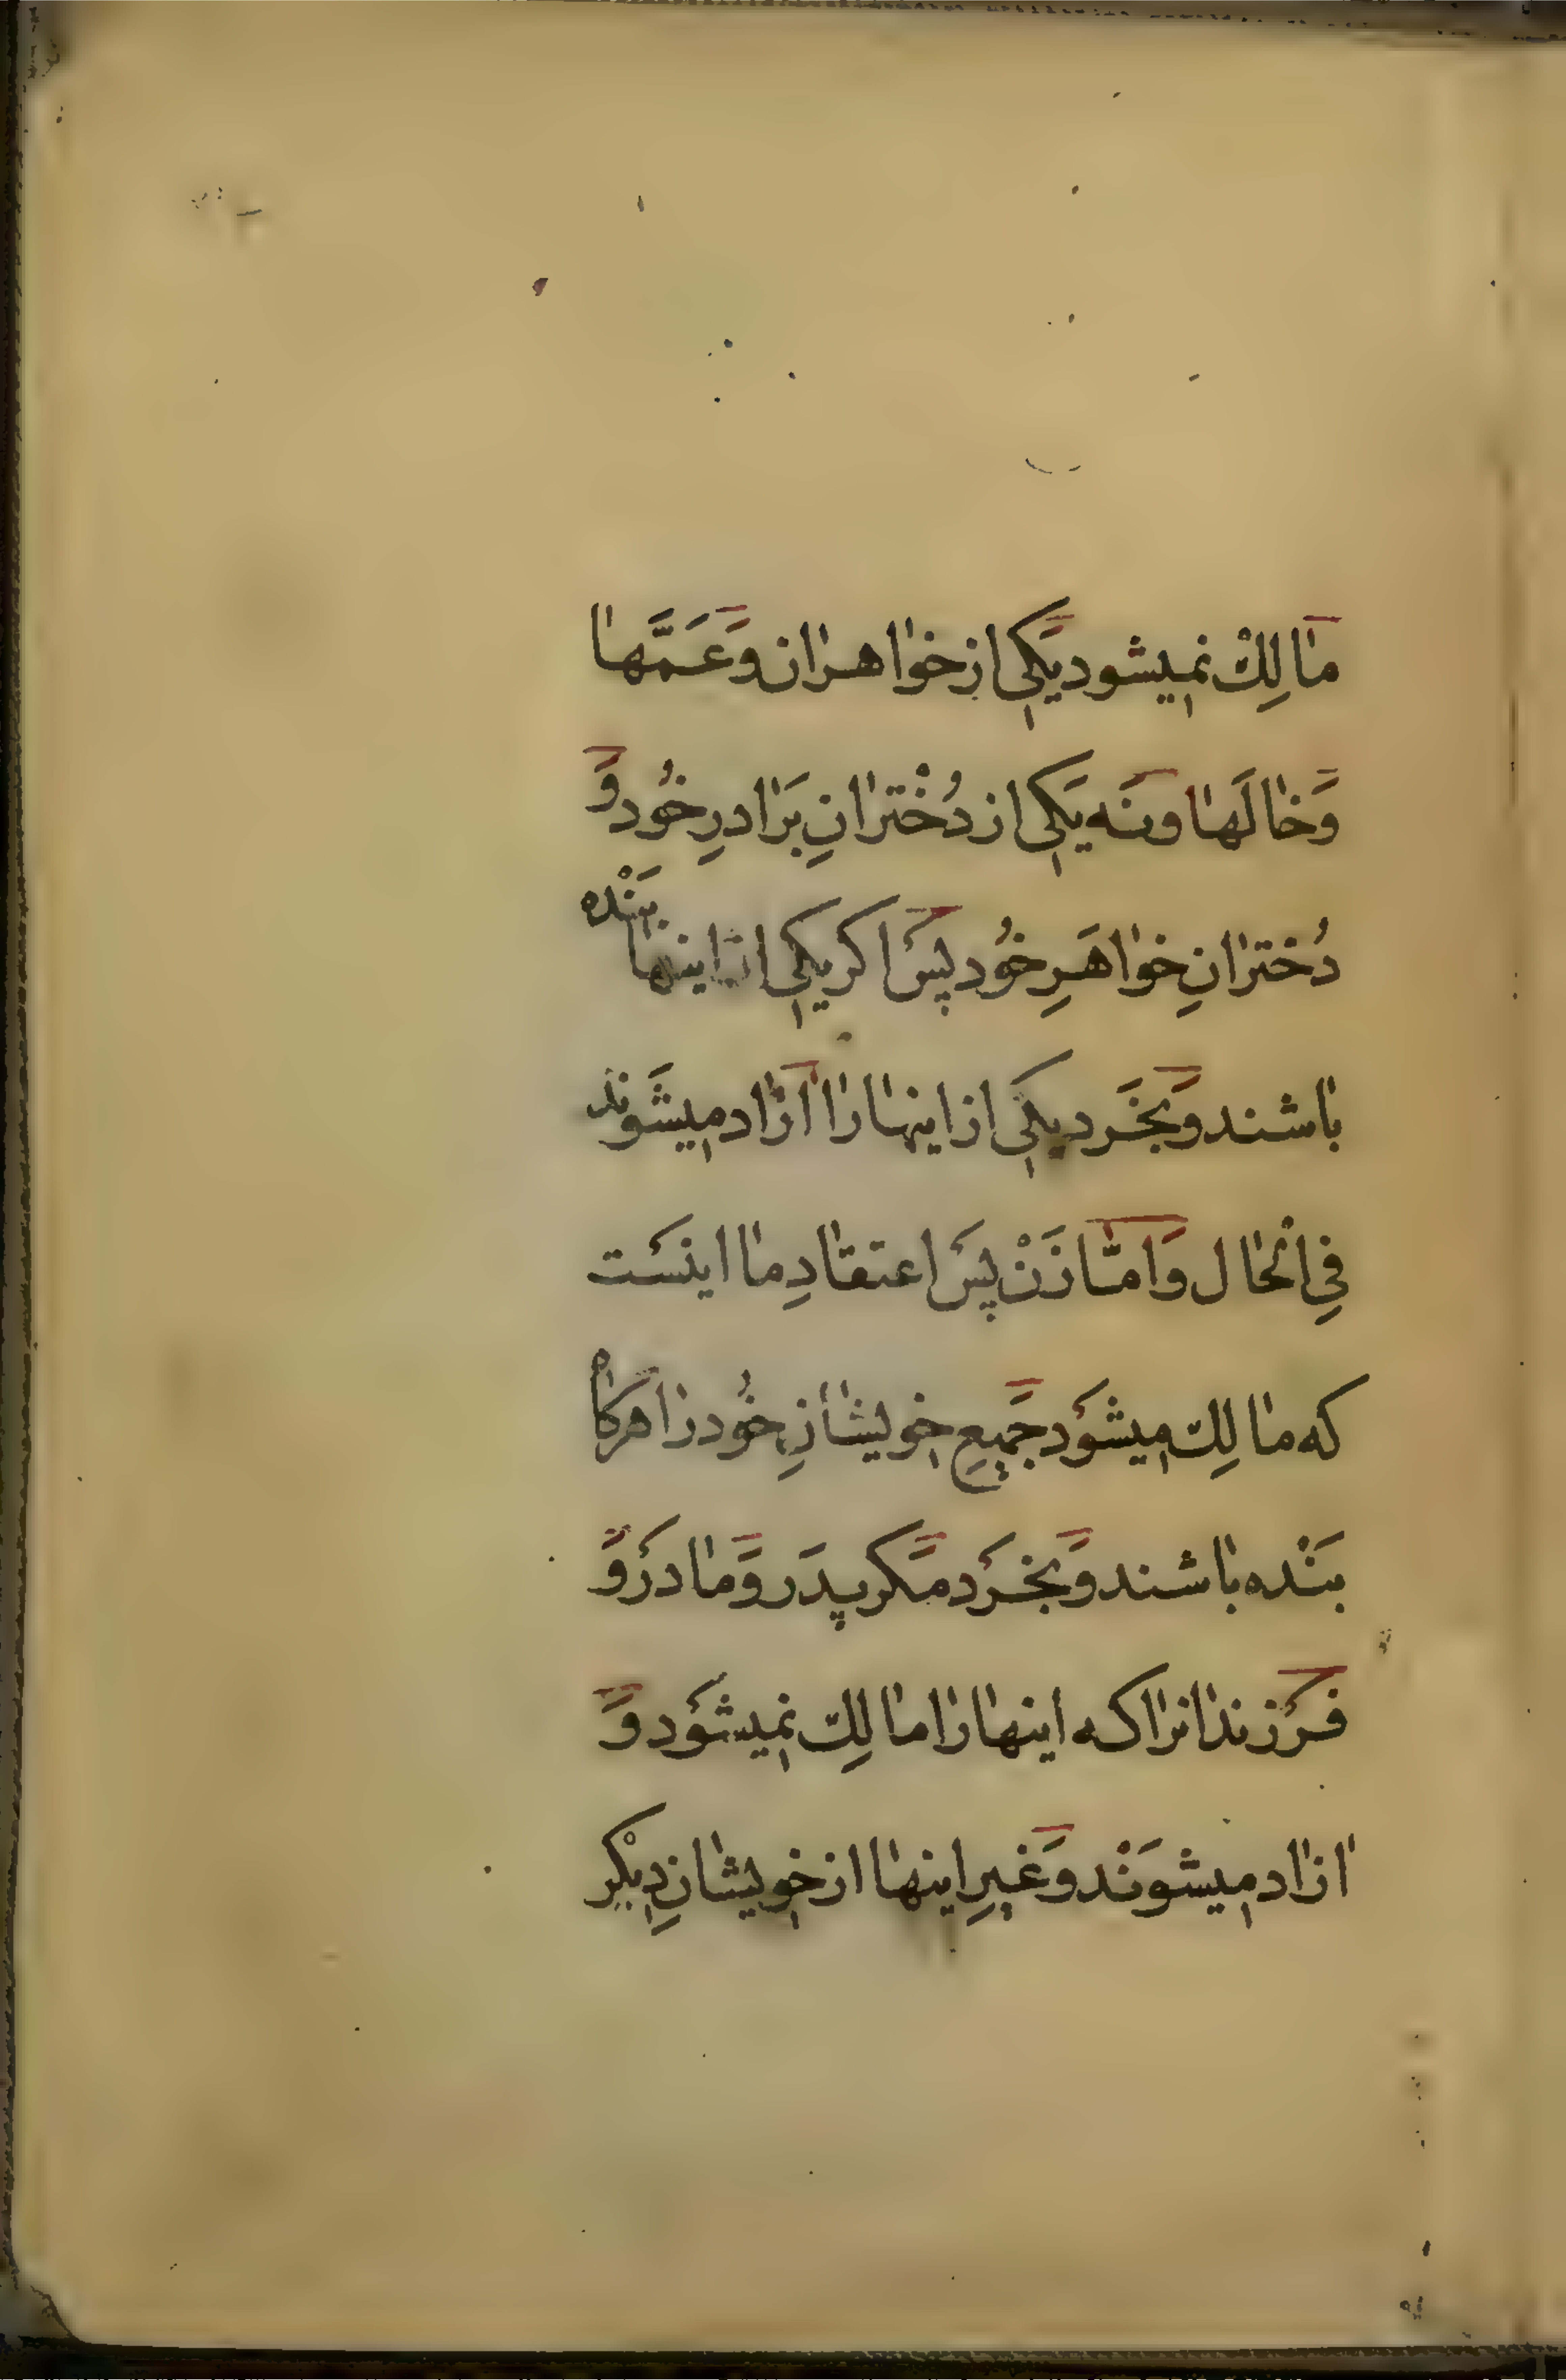 مٰالِكْ نمیشود یَكی از خوٰاهرٰان وَعَمَّهٰا
وَخٰالَهٰا ونَه یَكی از دُخْترٰانِ بَرٰادرِ خُود وَ
دُخترٰانِ خوٰاهَرِ خوُد پسَ اكر یكی از اینهٰا بَنْده
بٰاشند وَبخَرد یكَی از اینهٰا رٰا اٰزٰاد میشَوند
فِی الْحٰال وَامّٰا زَنْ پسَ اعتقٰادِ مٰا اینسَت
كه مٰالِك میشوَد جَمیعِ خویشٰانِ خُود رٰا هركٰاه
بَنْده بٰاشند وَبخرَد مَكر پدَر وَمٰادَر وَ
فرَزندٰانرٰا كه اینهٰا رٰا مٰالِك نمیشوَد وَ
اٰزٰاد میشوَنْد وَغیرِ اینهٰا از خویشٰانِ دِیكْر